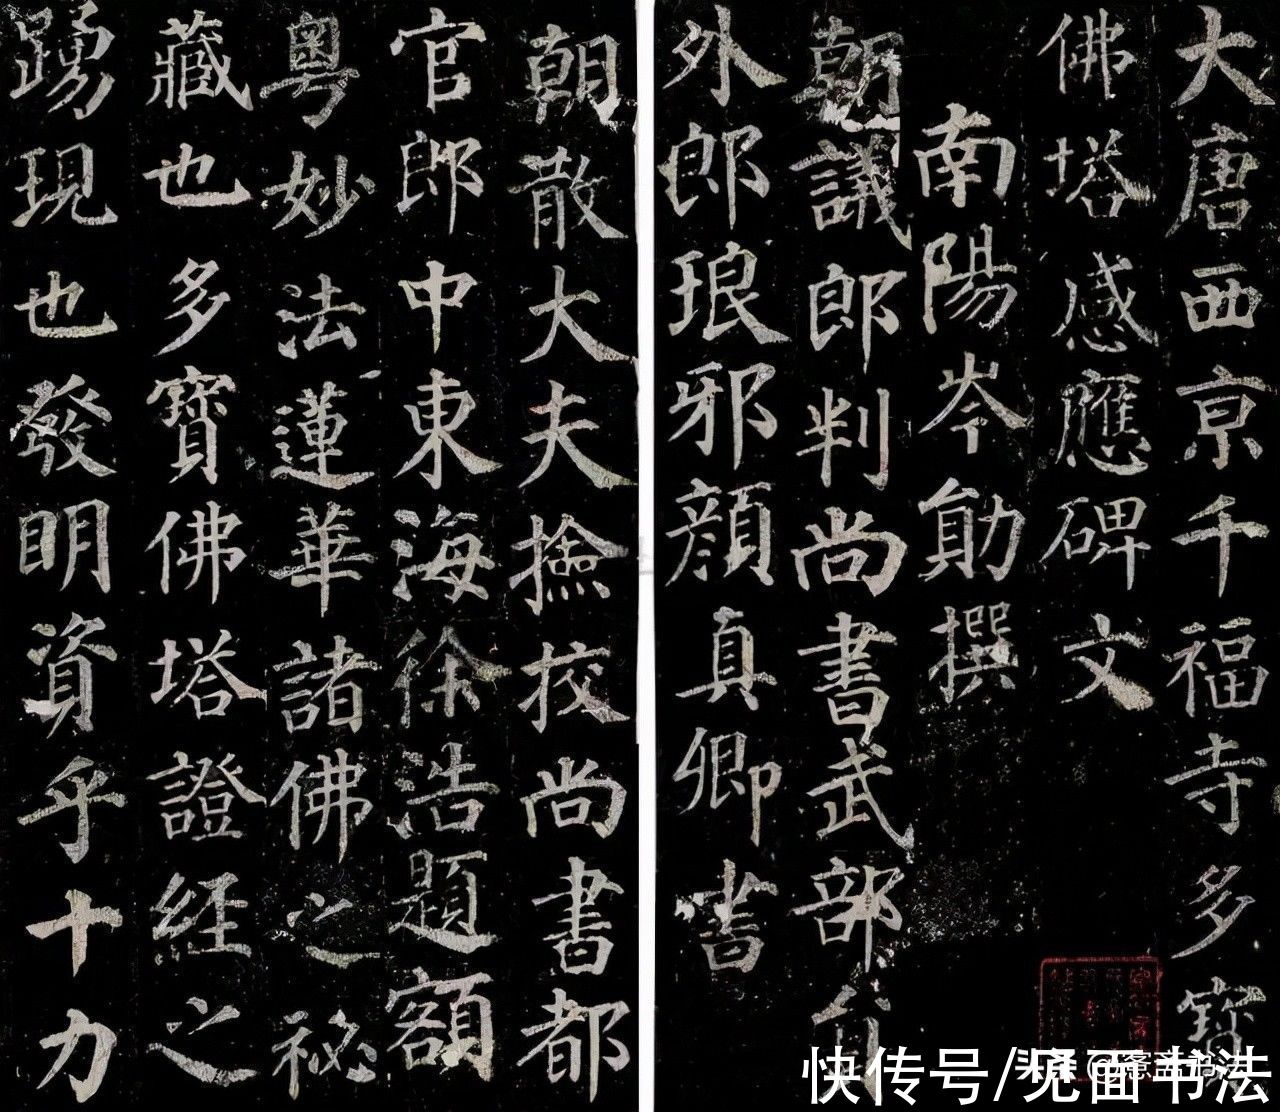 大唐西京千福寺多寶
佛塔感應碑文
南陽岑勛撰
朝議郎判尚書武部員
外郎琅邪顏真卿書
朝散大夫撿挍尚書都
官郎中東海徐浩題額
粵妙法蓮華諸佛之祕
藏也多寶佛塔證經之
踴現也發明資乎十力
快传号/见面书法